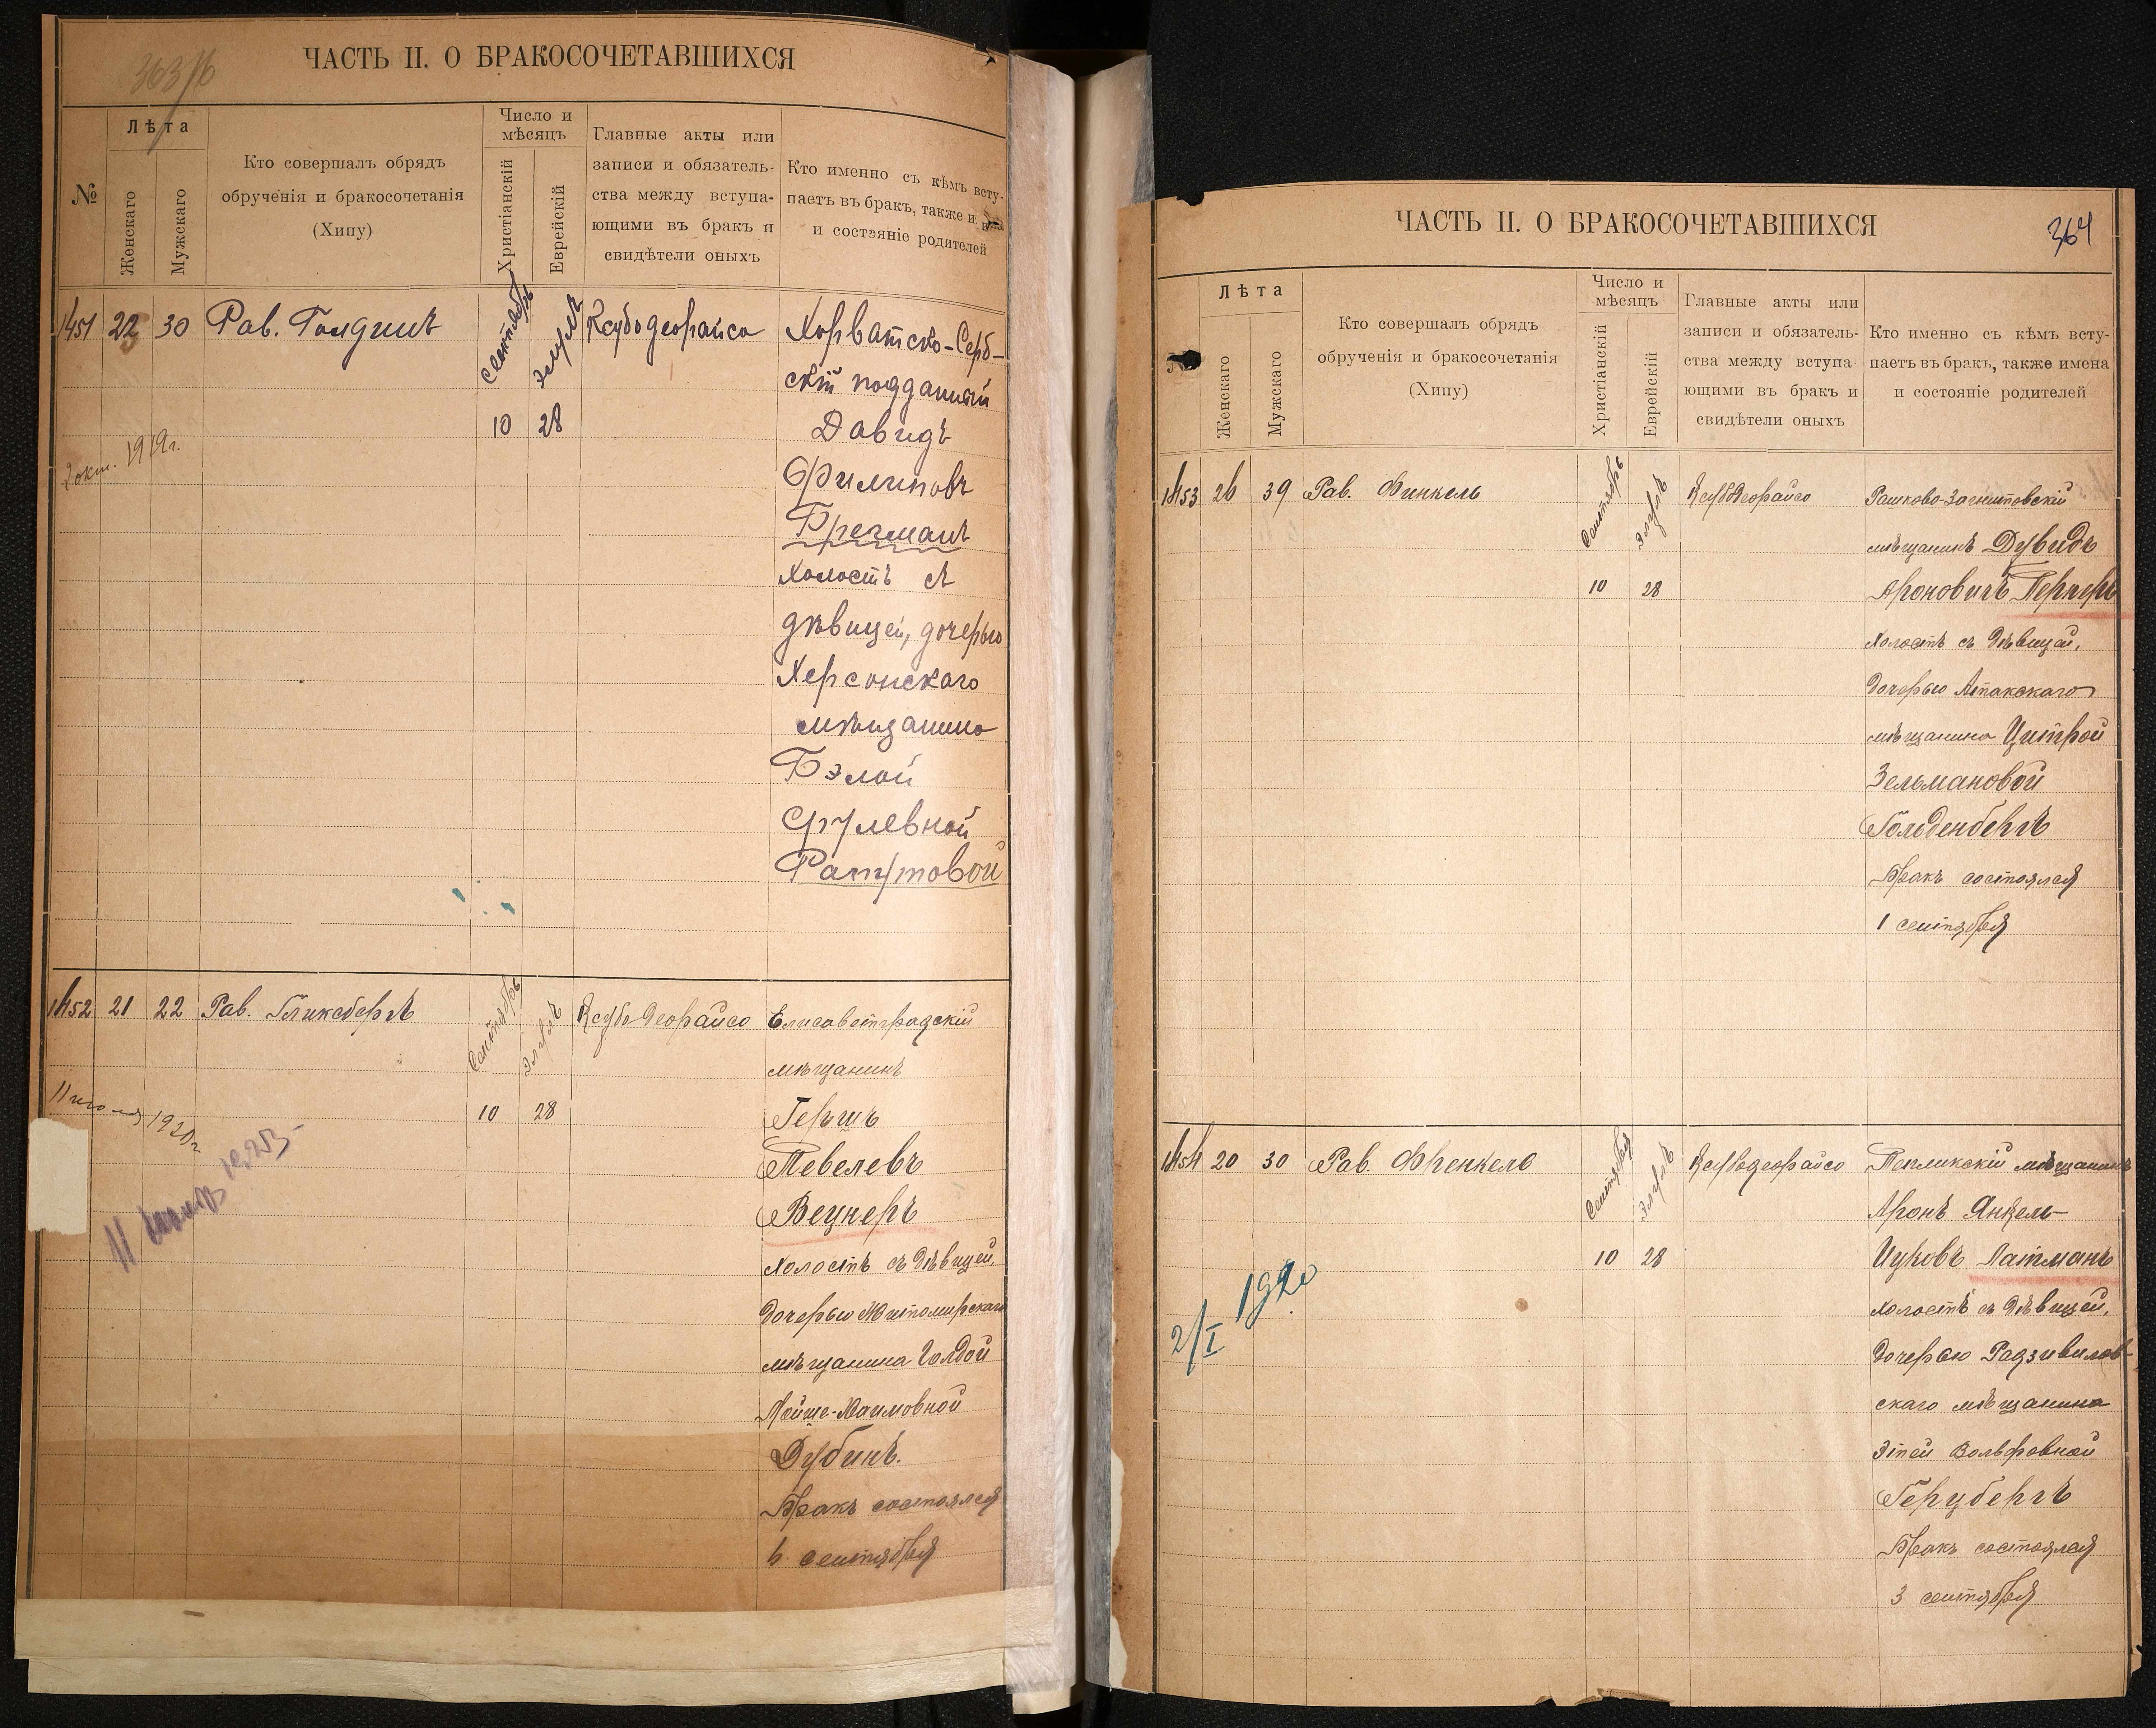 363/16
ЧАСТЬ II. О БРАКОСОЧЕТАВШИХСЯ
№
Лѣта
Женскаго
Мужскаго
Кто совершалъ обрядъ
обрученія и бракосочетанія
(Хипу)
Число и
мѣсяцъ
Христіанскій
Еврейскій
Главные акты или
записи и обязатель-
ства между вступа-
ющими въ бракъ и
свидѣтели оныхъ
Кто именно съ кѣмъ всту-
паетъ въ бракъ, также и
и состояніе родителей
1451 30 Рав. Голдинъ Сентябрь Элулъ Ксубодеорайсо Хорватско-Серб-
скій подданный
10 28 Давидъ
2 окт. 1919г.
Филиповъ
Бречманъ
холостъ съ
дѣвицей, дочерью
Херсонскаго
мѣщанина
Бэлой
Срулевной
Рапутовой
1452 21 22 Рав. Гликсбергъ Сентябрь Элулъ Ксубодеорайсо Елисаветградскій
мѣщанинъ
11 1920г 10 28 Гершъ
Тевелевъ
Вецнеръ
холостъ съ дѣвицей,
дочерью Житомирскаго
мѣщанина Голдой
Мойше-Хаимовной
Дубинъ.
Бракъ состоялся
6 сентября
364
ЧАСТЬ II. О БРАКОСОЧЕТАВШИХСЯ
Лѣта
Женскаго
Мужскаго
Кто совершалъ обрядъ
обрученія и бракосочетанія
(Хипу)
Число и
мѣсяцъ
Христіанскій
Еврейскій
Главные акты или
записи и обязатель-
ства между вступа
ющими въ бракъ и
свидѣтели оныхъ
Кто именно съ кѣмъ всту-
паетъ въ бракъ, также имена
и состояніе родителей
1453 26 39 Рав. Финкель Сентябрь Элулъ Ксубодеорайсо Рашково-Загнитовскій
мѣщанинъ Дувидъ
10 28 Ароновичъ Перперъ
холостъ съ дѣвицей,
дочерью Атакскаго
мѣщанина Цитрой
Зельмановой
Гольденбергъ
Бракъ состоялся
1 сентября
1454 20 30 Рав. Френкель Сентябрь Элулъ Ксубодеорайсо Тепликскій мѣщанинъ
Аронъ Янкель-
10 28 Ицковъ Латманъ
2/I 1920
холостъ съ дѣвицей,
дочерью Радзивилов-
скаго мѣщанина
Этей Вольфовной
Герцбергъ
Бракъ состоялся
3 сентября